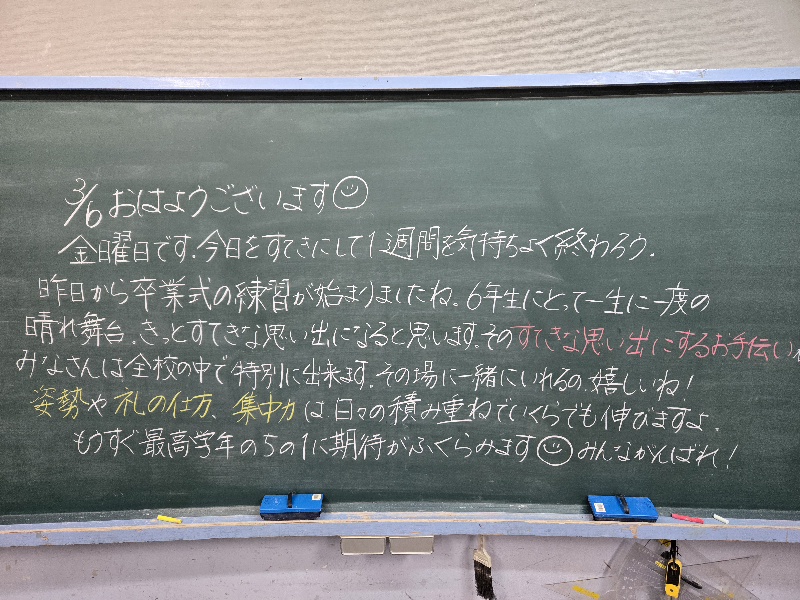 3/6 おはようございます
金曜日です.今日をすてきにして1週間を気持ちよく終わろう.
昨日から卒業式の練習が始まりましたね.6年生にとって一生に一度の
晴れ舞台.きっとすてきな思い出になると思います.そのすてきな思い出にするお手伝い
みなさんは全校の中で特別に出来ます.その場に一緒にいれるの、嬉しいね!
姿勢や礼の仕方、集中力は日々の積み重ねでいくらでも伸びますよ.
もうすぐ最高学年の5の1に期待がふくらみます みんながんばれ!